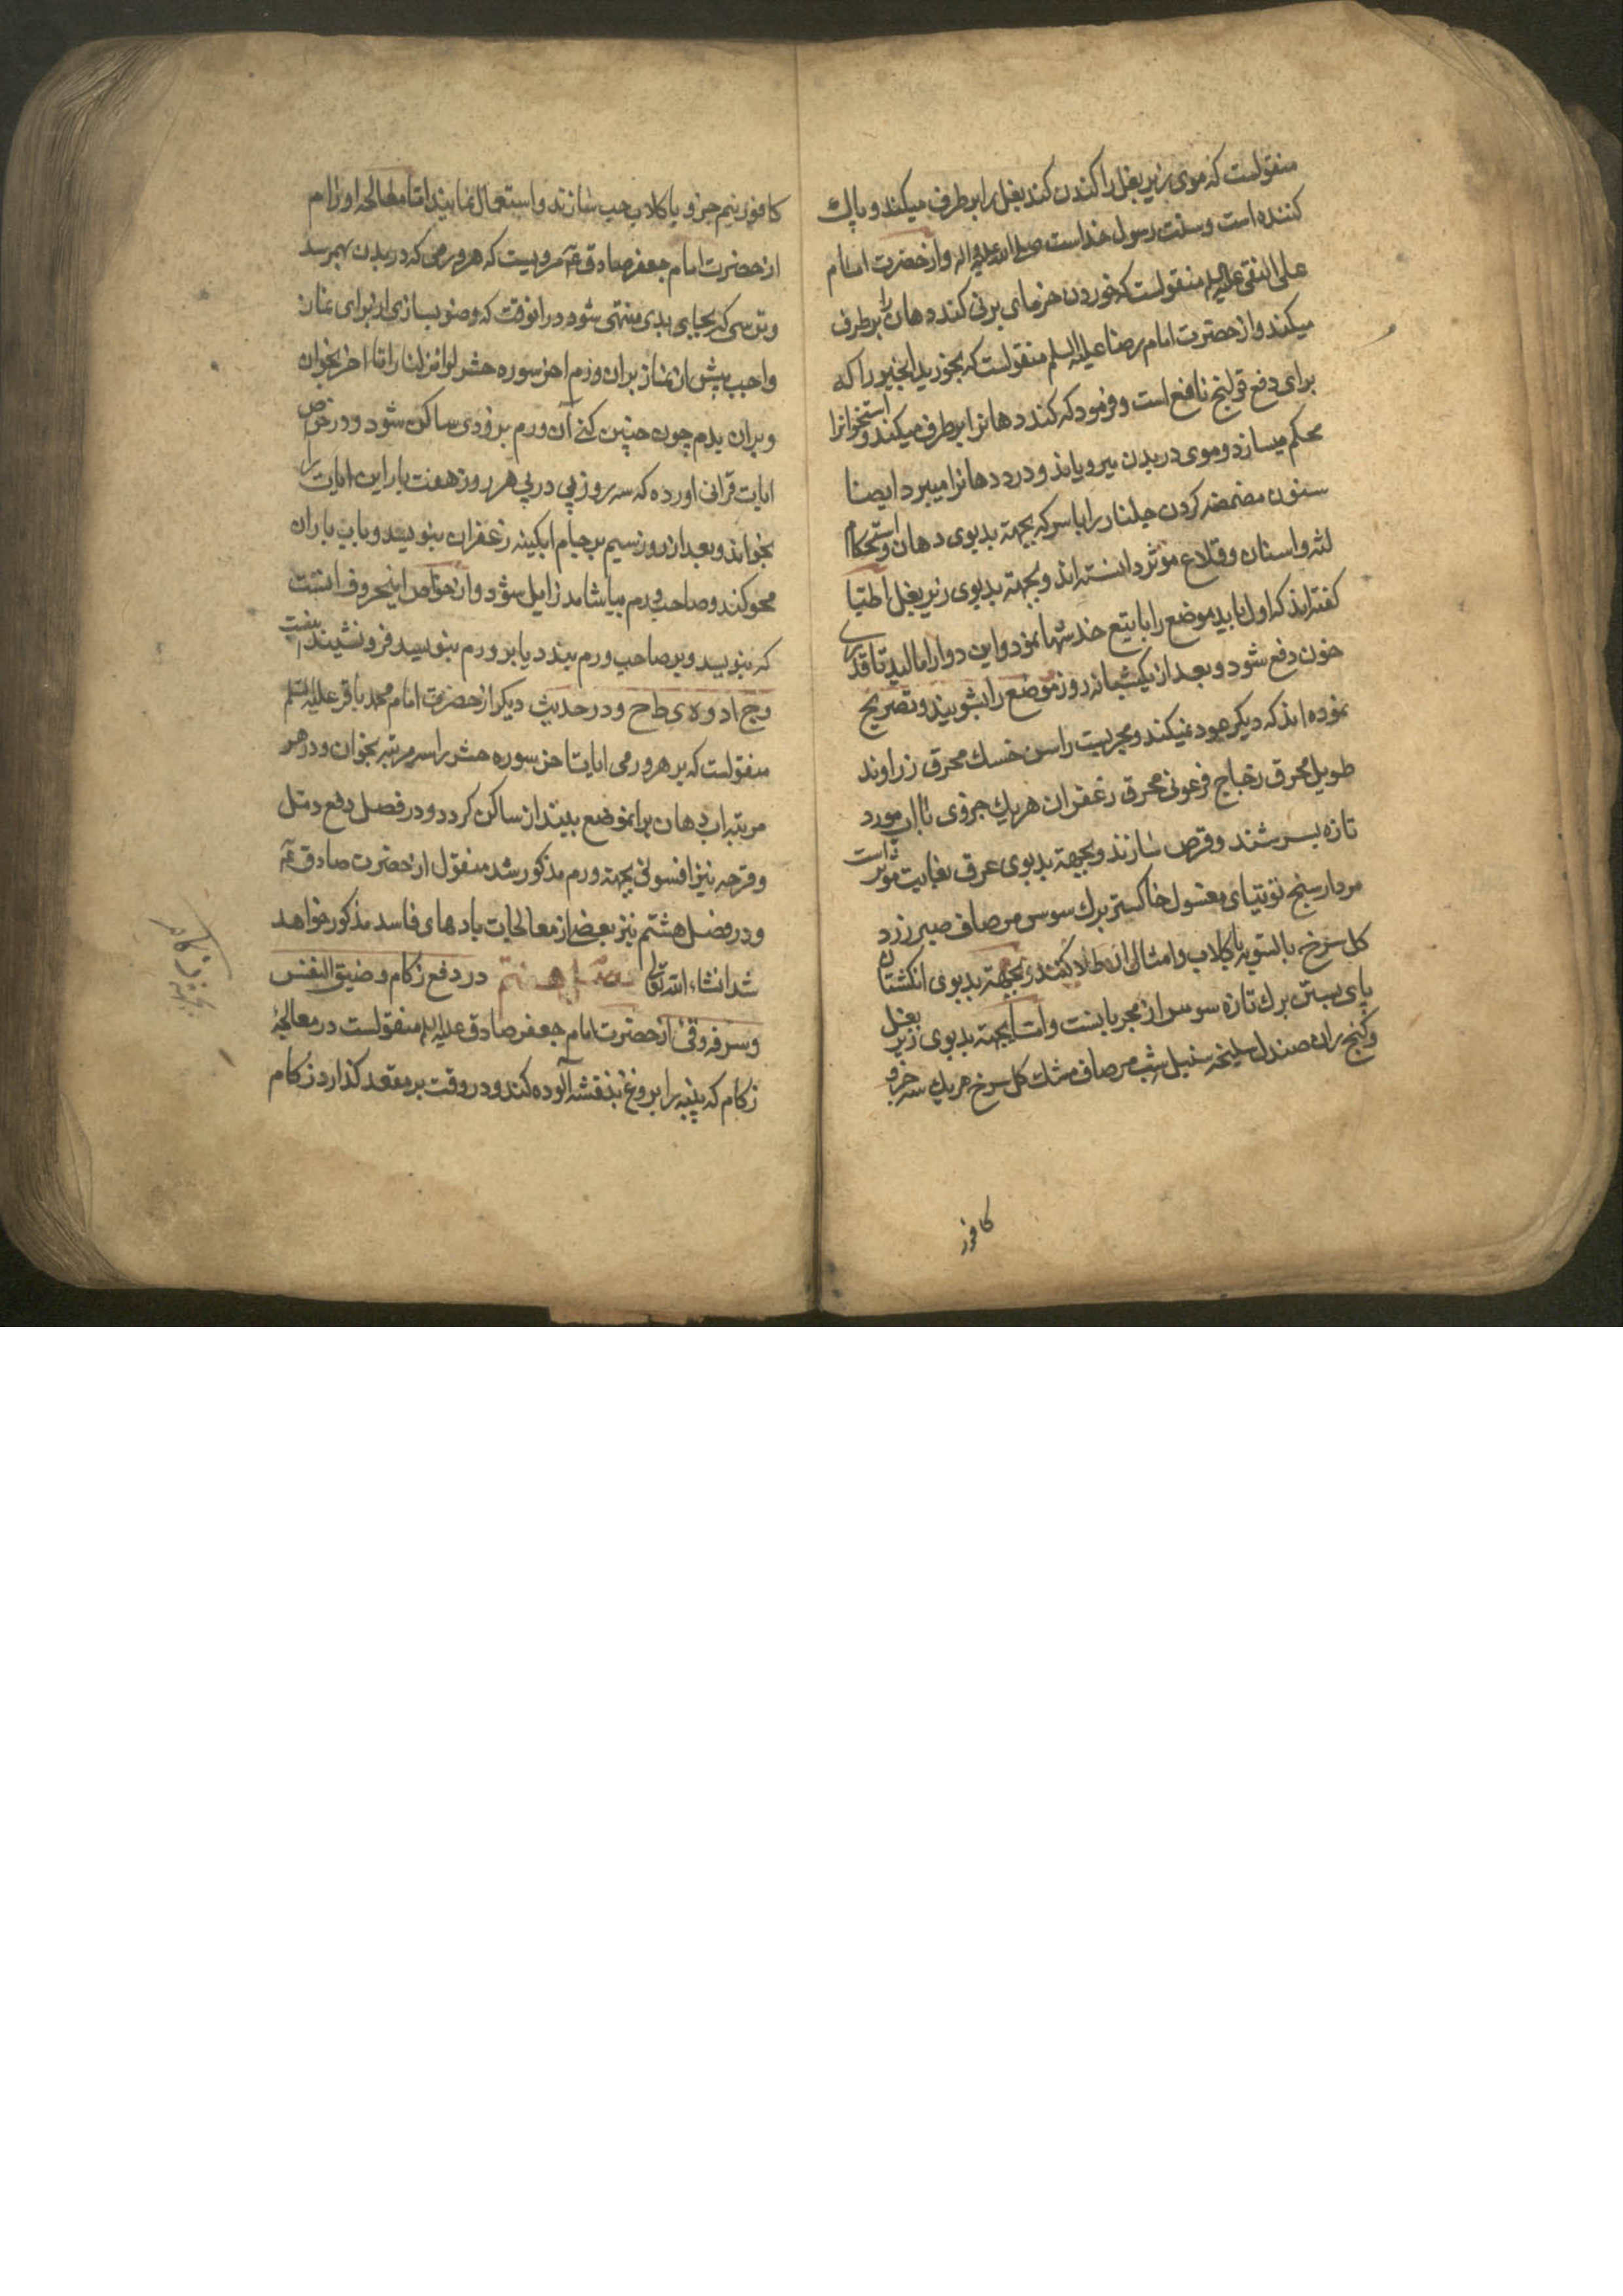 منقولست که موی زیر بغل را کندن کند بغل را برطرف میکند و پاک
کننده است و سنت رسول خداست صلی الله علیه و اله و از حضرت امام
علی النقی علیه السلم منقولست که خوردن خرمای برنی کند دهان را برطرف
میکند و از حضرت امام رضا علیه السلم منقولست که بخورید انجیر را که
برای دفع قولنج نافع است و فرمود که کند دهانرا برطرف میکند و استخوانرا
محکم میسازد و موی در بدن میرویاند و درد دهانرا میبرد ایضا
سنون مضمضه کردن جلنار را با سرکه بجهة بدبوی دهان و استحکام
لثه و اسنان و قلاع موثر دانسته اند و بجهة بدبوی زیر بغل اطبا
گفته اند که اول باید موضع را با تیغ خدشها نمود و این دوا را مالید تا قدری
خون دفع شود و بعد از یکشبانه روز موضع را بشویند و تصریح
نموده اند که دیگر عود نمیکند و مجربست راسن خسک محرق زراوند
طویل محرق زجاج فرعونی محرق زعفران هر یک جزوی با آب مورد
تازه بسرشند و قرص سازند و بجهة بدبوی عرق بغایت موثر است
مردار سنج توتیای مغسول خاکستر برک سوسن مر صاف صبر زرد
کل سرخ بالسویه با کلاب و امثال ان طلا کنند و بجهة بدبوی انکشتان
پای بستن برک تازه سوسن از مجرباتست و اما بجهة بدبوی زیر بغل
و کنج ران صندل سلیخه سنبل شب مر صاف مشک کل سرخ هر یک سه جزو
کافور
کافور نیم جزو با کلاب حب سازند و استعمال نمایند اما معالجه اورام
از حضرت امام جعفر صادق ع مرویست که هر ورمی که در بدن بهمرسد
و ترسی که بجایی بدی منتهی شود در انوقت که وضو بسازی از برای نماز
واجب پیش از نماز بران ورم اخر سوره حشر لو انزلنا را تا اخر بخوان
و بران بدم چون چنین کنی آن ورم بزودی ساکن شود و در خواص
ایات قرانی اورده که سه روز پی در پی هر روز هفت بار این ایات را
بخواند و بعد از روز سیم بر جام ابکینه زعفران بنویسد و باب باران
محو کند و صاحب ورم بیاشامد زایل شود و از خواص اینحروف انست
که بنویسد و بر صاحب ورم بندد یا بر ورم بنویسد فرو نشیند
و ج اد و ه ی ط ح و در حدیث دیکر از حضرت امام محمد باقر علیه السلم
منقولست که بر هر ورمی ایات اخر سوره حشر را سه مرتبه بخوان و در هر
مرتبه اب دهان بر انموضع بینداز ساکن کردد و در فصل دفع دمل
و قرحه نیز افسونی بجهة ورم مذکور شد منقول از حضرت صادق ع
و در فصل هشتم نیز بعضی از معالجات بادهای فاسد مذکور خواهد
شد انشاء الله تعالی فصل هفتم در دفع زکام و ضیق النفس
و سرفه و قی از حضرت امام جعفر صادق علیه السلم منقولست در معالجه
زکام که پنبه را بروغن بنفشه آلوده کند و در وقت بر مقعد کذارد زکام
بجهة زکام